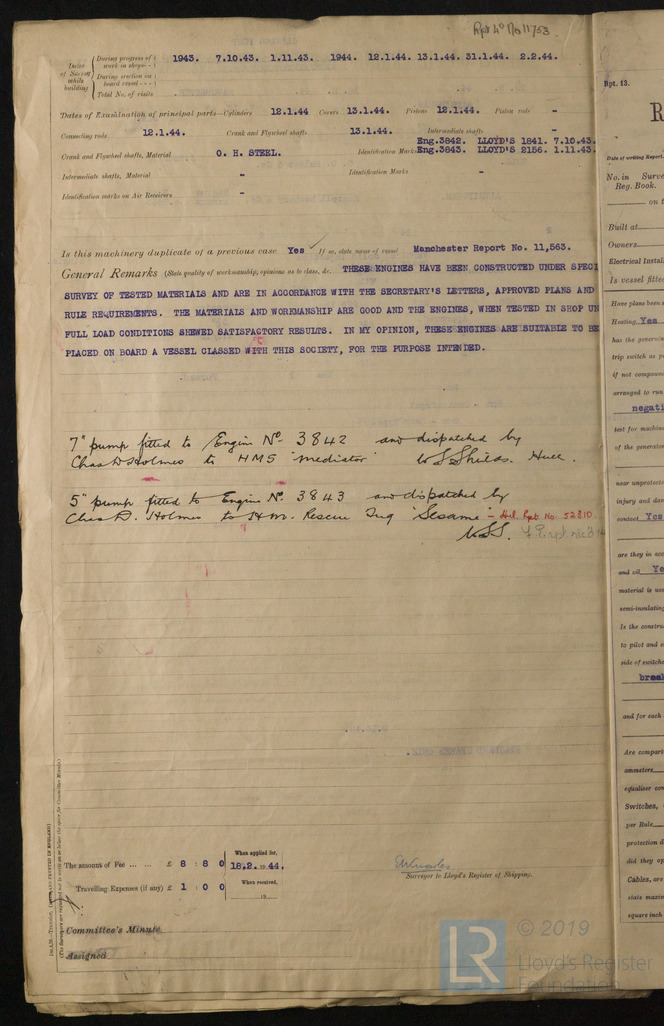 Rpt 4c No 11753
Dates of Survey while building
During progress of work in shops - - 1943. 7.10.43. 1.11.43. 1944. 12.1.44. 13.1.44. 31.1.44. 2.2.44.
During erection on board vessel - - -
Total No. of visits
Dates of Examination of principal parts—Cylinders 12.1.44 Covers 13.1.44. Pistons 12.1.44. Piston rods -
Connecting rods 12.1.44. Crank and Flywheel shafts 13.1.44. Intermediate shafts -
Crank and Flywheel shafts, Material O. H. STEEL. Identification Marks Eng.3842. LLOYD'S 1841. 7.10.43.
Eng.3843. LLOYD'S 2156. 1.11.43.
Intermediate shafts, Material - Identification Marks -
Identification marks on Air Receivers -
Is this machinery duplicate of a previous case Yes If so, state name of vessel Manchester Report No. 11,563.
General Remarks (State quality of workmanship, opinions as to class, &c. THESE ENGINES HAVE BEEN CONSTRUCTED UNDER SPECI
SURVEY OF TESTED MATERIALS AND ARE IN ACCORDANCE WITH THE SECRETARY'S LETTERS, APPROVED PLANS AND
RULE REQUIREMENTS. THE MATERIALS AND WORKMANSHIP ARE GOOD AND THE ENGINES, WHEN TESTED IN SHOP UN
FULL LOAD CONDITIONS SHEWED SATISFACTORY RESULTS. IN MY OPINION, THESE ENGINES ARE SUITABLE TO BE
PLACED ON BOARD A VESSEL CLASSED WITH THIS SOCIETY, FOR THE PURPOSE INTENDED.
7" pump fitted to Engine No. 3842 and dispatched by
Chas D Holmes to HMS "Mediator" Hull.
5" pump fitted to Engine No. 3843 and dispatched by
Chas D. Holmes to H.M. Rescue Tug "Sesame" - Hul. Rpt No. 52310
The amount of Fee ... ... £ 8 : 8 0 When applied for, 18.2. 1944.
Travelling Expenses (if any) £ 1 : 0 0 When received, 19
Surveyor to Lloyd's Register of Shipping.
Committee's Minute
Assigned
Rpt. 13.
R
Date of writing Report
No. in Surve
Reg. Book.
on t
Built at
Owners
Electrical Instal
Is vessel fitted
Have plans been s
Heating, Yes
has the generat
trip switch as p
if not compoun
arranged to run
negati
test for machin
of the generato
near unprotect
injury and dam
contact Yes
are they in acc
and oil Ye
material is use
semi-insulating
Is the constru
to pilot and e
side of switche
break
and for each
Are compart
ammeters
equaliser con
Switches,
per Rule
protection d
did they op
Cables, are
state maxim
square inch
LR
© 2019
Lloyd's Register
Foundation